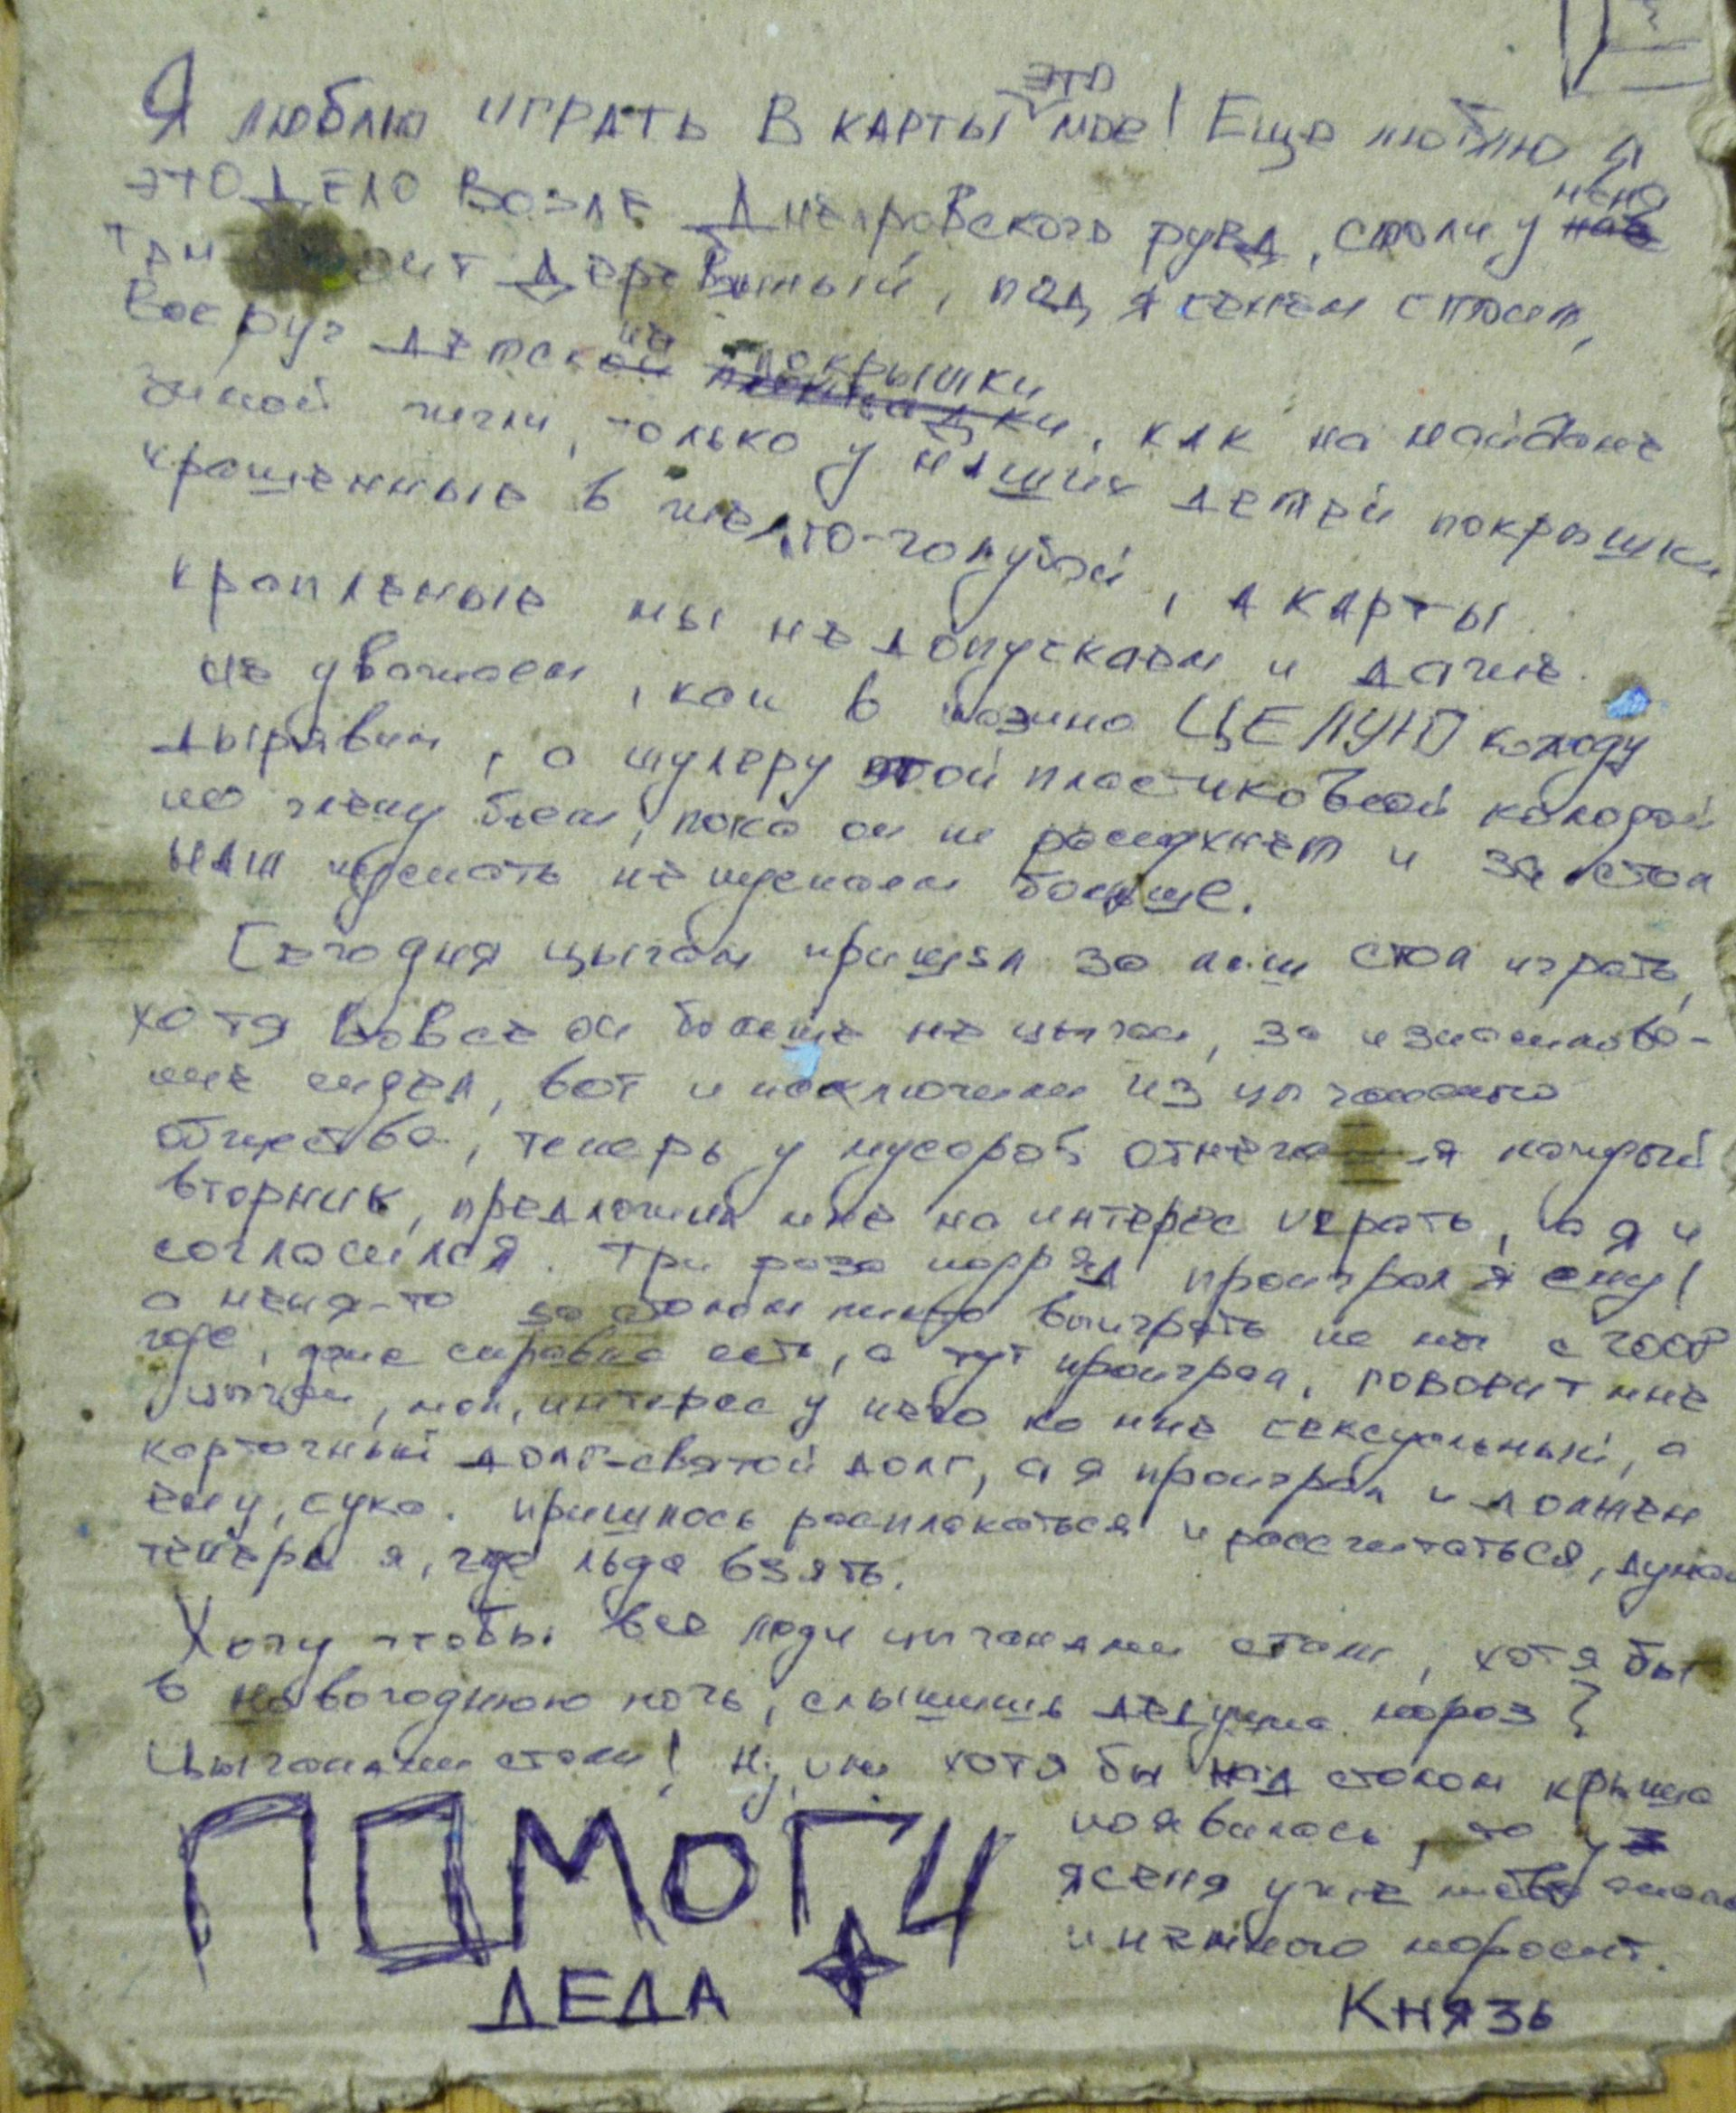 Я люблю играть в карты это мое! Еще люблю я
это дело возле Днепровского рувд, столик у
там стоит деревянный, под ясенем стоит,
вокруг детской площадки покрышки, как на майдане
зимой жгли, только у наших детей покрышки
крашенные в желто-голубой, а карты
крапленые мы не допускаем и даже
не уважаем, как в казино ЦЕЛУЮ колоду
дырявим, а шулеру этой пластиковой колодой
по члену бьем, пока он не распухнет и за стол
наш пускать не пускаем больше.
Сегодня цыган пришел за наш стол играть,
хотя вовсе он больше не цыган, за изнасилова-
ние сидел, вот и исключили из цыганского
общества, теперь у мусоров отмечается каждый
вторник, предложил мне на интерес играть, а я и
согласился. Три раза подряд проиграл я ему!
а меня-то за столом никто выиграть не мог с 2008
года, даже справка есть, а тут проиграл, говорит мне
цыган, мол, интерес у него ко мне сексуальный, а
карточный долг-святой долг, а я проиграл и должен
ему, сука. пришлось расплакаться и рассчитаться, думаю
теперь я, где льда взять.
Хочу чтобы все люди цыганами стали, хотя бы
в новогоднюю ночь, слышишь дедушка мороз?
Цыганами стали! Ну, или хотя бы над столом крыша
появилась, то у
ясеня уже опали
и немного моросит.
ПОМОГИ
ДЕДА
Князь